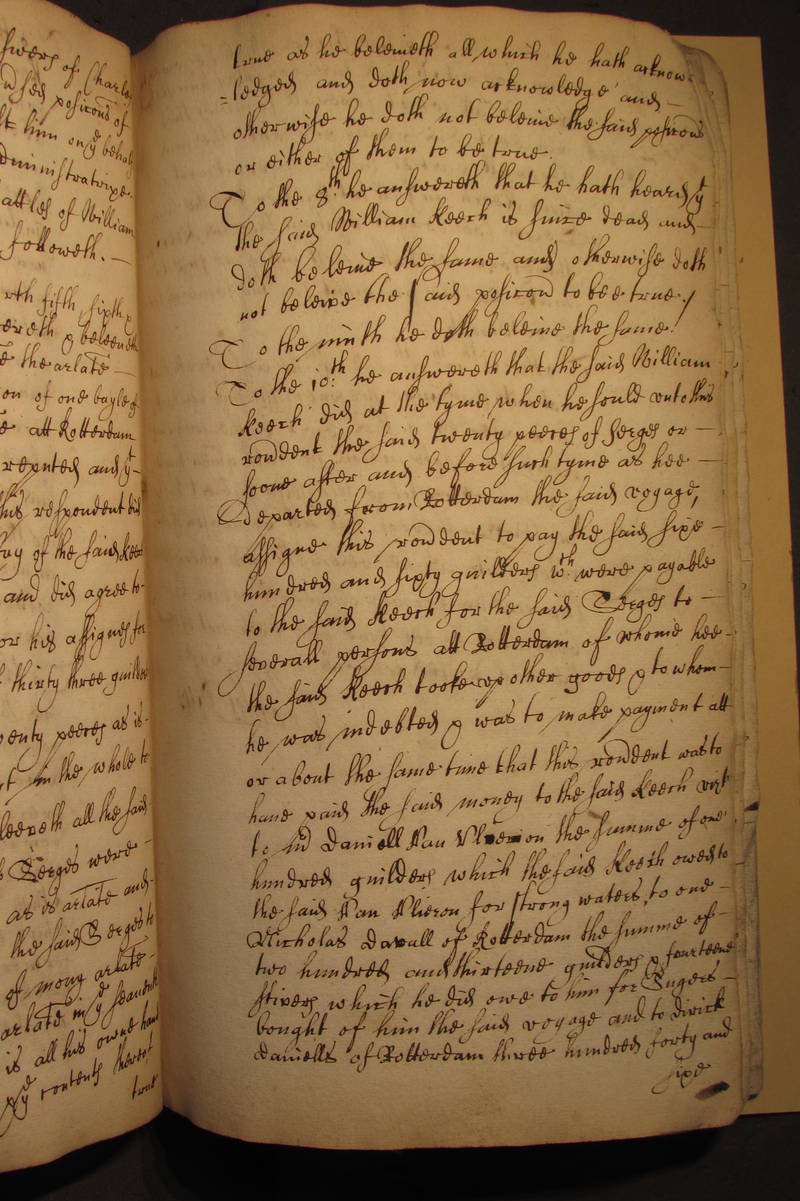 swers of Charles
posicons of
him on ye behalf
dministratrixe
attles of William
followeth. —
rth fifth, sixth
ereth & beleeveth
the arlate —
on of one bayle of
att Rotterdam
reputed and yt
this respondent did
ay of the said Keech
and did agree to
or his assignes for
thirty three guilders
wenty peeces as is
in the whole to
beleeveth all the said
Serges were —
as is arlate and
the said Serges to
of mony arlate
arlate in ye seaventh
is all his owne hand
ye contents thereof
true
true as he beleiveth all which he hath acknow=
=ledged and doth now acknowledge and —
otherwise he doth not beleive the said posicons
or either of them to be true.
To the 8th he answereth that he hath heard yt
the said William Keech is since dead and —
doth beleive the same and otherwise doth
not beleive the said posicon to bee true /
To the ninth he doth beleive the same.
To the 10th he answereth that the said William
Keech did at the tyme when he sould unto this
rondent the said twenty peeces of Serges or —
soone after and before such tyme as hee —
Departed from Rotterdam the said voyage,
assigne this rondent to pay the said sixe —
hundred and sixty guilders wch were payable
to the said Keech for the said Serges to —
severall persons att Rotterdam of whome hee —
the said Keech tooke up other goods & to whom —
he was indebted & was to make payment att
or about the same time that this rondent was to
have paid the said money to the said Keech vizt
to Daniell Van Vlieron the summe of one
hundred guilders which the said Keech owed to
the said Van Vlieron for strong waters, to one —
Nicholas Davall of Rotterdam the summe of —
two hundred and thirteene guilders & fourteene
stivers which he did owe to him for Sugers —
bought of him the said voyage and to Dirick
Daniells of Rotterdam three hundred forty and
sixe